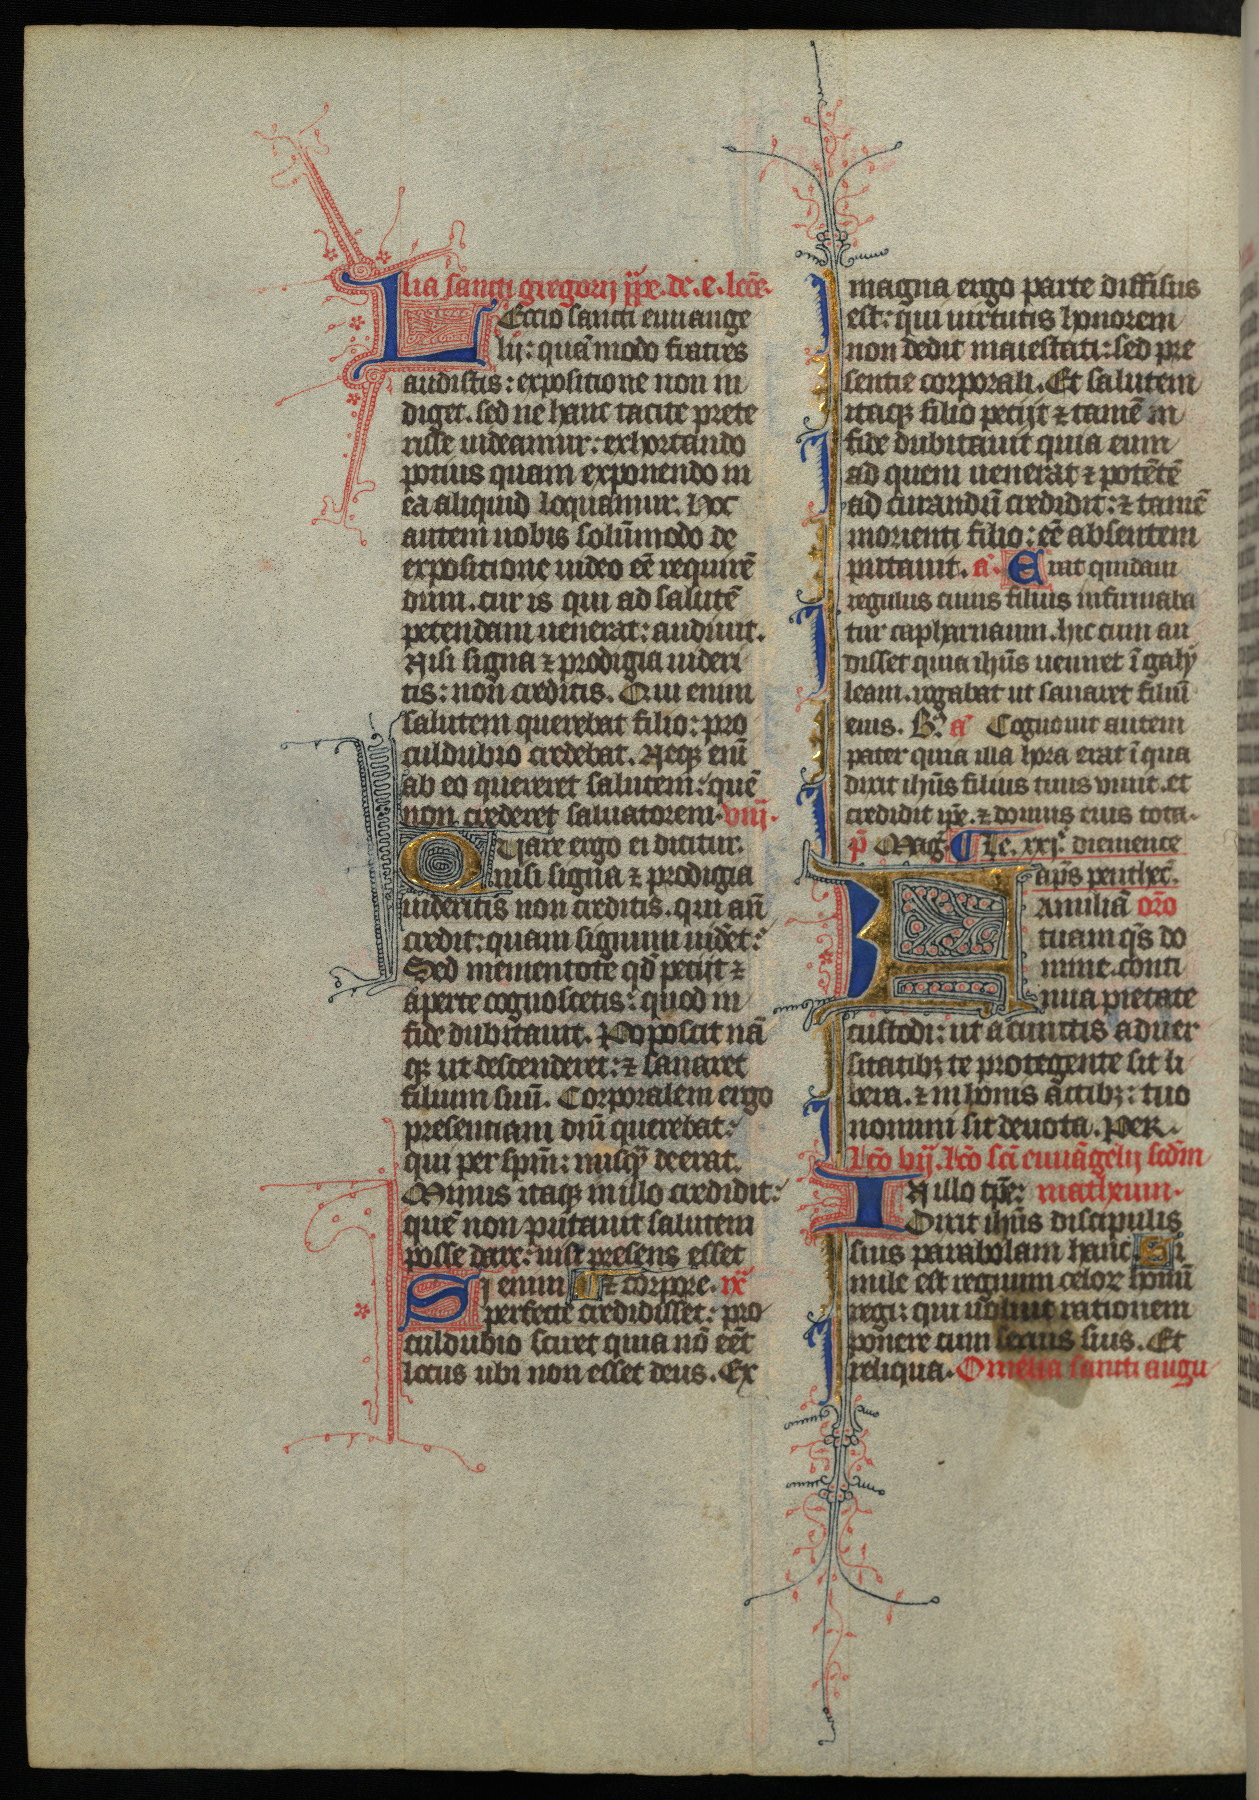 lia sancti gregorij ppe. de. e. lccē.
Lectio sancti euuange
lij: quā modo fratres
audistis: expositione non in
diget. sed ne hanc tacite prete
risse uideamur: exhortando
potius quam exponendo in
ea aliquid loquamur. Hoc
autem nobis solūmodo de
expositione uideo eē requirē
dum. cur is qui ad salutē
petendam uenerat: audiuit.
Nisi signa ⁊ prodigia uideri
tis: non creditis. Qui enim
salutem querebat filio: pro
culdubio credebat. Neqꝫ enī
ab eo quereret salutem: quē
non crederet saluatorem. viij.
Quare ergo ei dicitur.
nisi signa ⁊ prodigia
uideritis non creditis. qui an̄
credit: quam signum uidet:
Sed mementote qd̄ petijt ⁊
aperte cognoscetis: quod in
fide dubitauit. Poposcit nā
qꝫ ut descenderet: ⁊ sanaret
filium suū. Corporalem ergo
presentiam dn̄i querebat:
qui per spm̄: nusqͣ deerat.
Minus itaqꝫ in illo credidit:
quē non putauit salutem
posse dare: nisi presens esset
Si enim et corpore. ix
perfecte credidisset: pro
culdubio sciret quia nō eēt
locus ubi non esset deus. Ex
magna ergo parte diffisus
est: qui uirtutis honorem
non dedit maiestati: sed pre
sentie corporali. Et salutem
itaqꝫ filio petijt ⁊ tamē in
fide dubitauit quia eum
ad quem uenerat ⁊ potētē
ad curandū credidit: ⁊ tamē
morienti filio: eē absentem
putauit. a. Erat quidam
regulus cuius filius infirmaba
tur capharnaum. hic cum au
disset quia ih̄us ueniret ī galy
leam. rogabat ut sanaret filiū
eius. B. a Cognouit autem
pater quia illa hora erat ī qua
dixit ih̄us filius tuus viuit. et
credidit ip̄e. ⁊ domus eius tota.
p̄ Mag. Le. xxj. diemence
aps penthec̄.
Familiā oro
tuam qs̄ do
mine. conti
nua pietate
custodi: ut a cunctis aduer
sitatibꝫ te protegente sit li
bera. ⁊ in bonis actibꝫ: tuo
nomini sit deuota. Per.
Lc̄o vij. Lc̄o sc̄i euuāgelij scdm
In illo tpe: matheum.
Dixit ih̄us discipulis
suis parabolam hanc. Si
mile est regnum celoꝝ homī
regi: qui uoluit rationem
ponere cum seruis suis. Et
reliqua. Omelia sancti augu